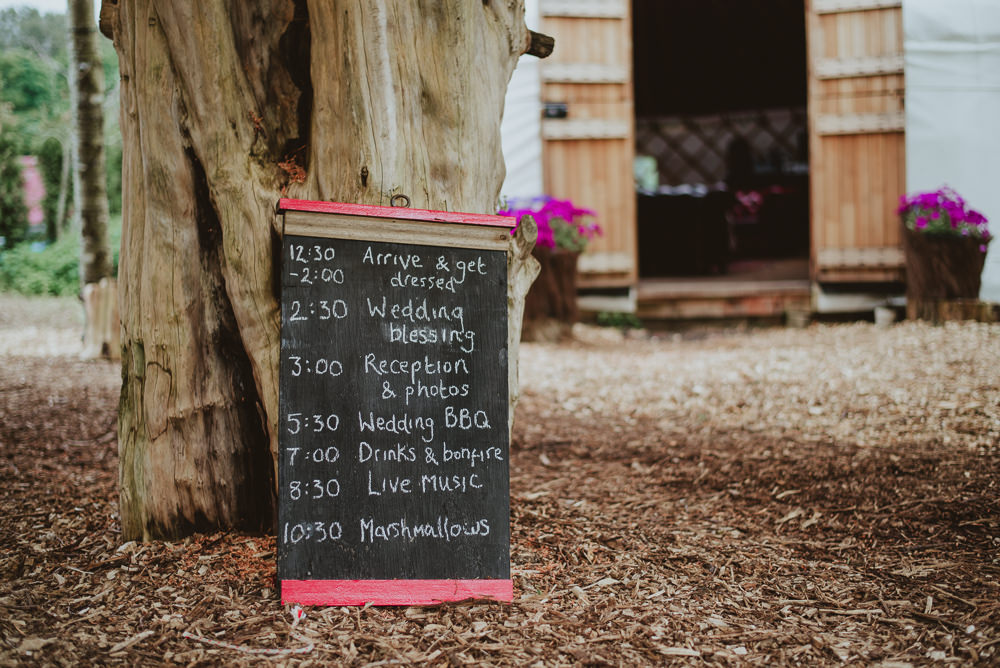 12:30 Arrive & get
-2:00 dressed
2:30 Wedding
blessing
3:00 Reception
& photos
5:30 Wedding BBQ
7:00 Drinks & bonfire
8:30 Live music
10:30 Marshmallows